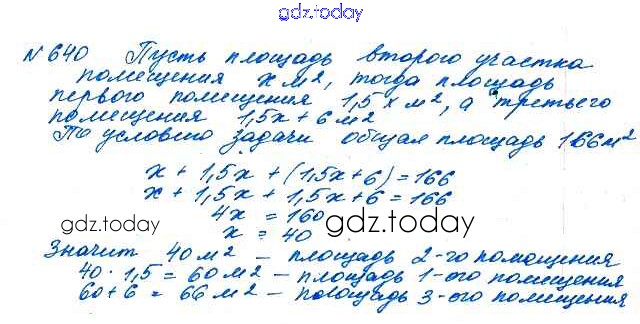 gdz.today
№ 640 Пусть площадь второго участка
помещения x м², тогда площадь
первого помещения 1,5x м², а третьего
помещения 1,5x + 6 м²
По условию задачи общая площадь 166м²
x + 1,5x + (1,5x+6) = 166
x + 1,5x + 1,5x + 6 = 166
4x = 160
gdz.today gdz.today
x = 40
Значит 40 м² – площадь 2-го помощения
40 · 1,5 = 60 м² – площадь 1-ого помещения
60+6 = 66 м² – площадь 3-ого помещения